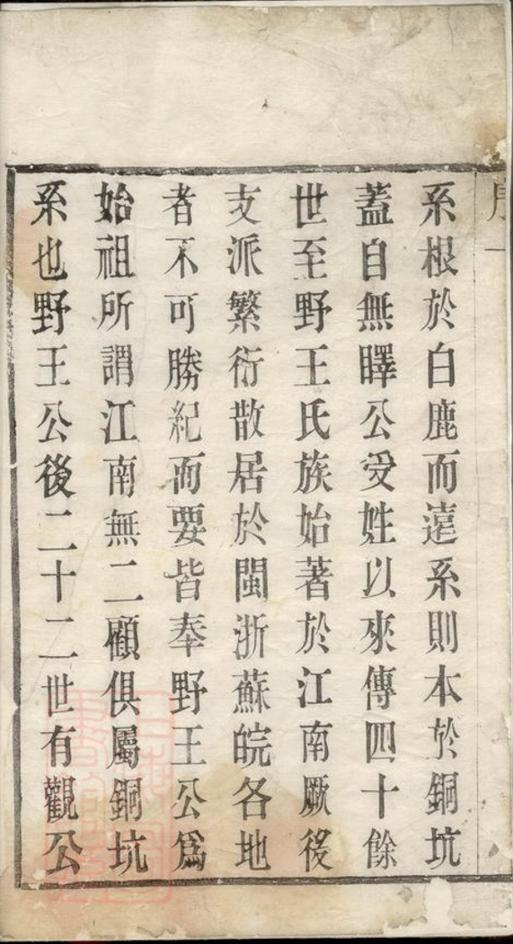 序一
系根於白鹿而遠系則本於銅坑
蓋自無睪公受姓以來傳四十餘
世至野王氏族始著於江南厥後
支派繁衍散居於閩浙蘇皖各地
者不可勝紀而要皆奉野王公爲
始祖所謂江南無二顧俱屬銅坑
系也野王公後二十二世有觀公